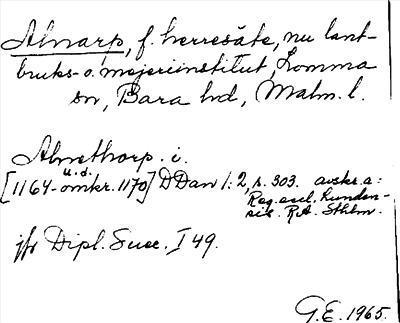 Alnarp, f. herresäte, nu lant-
bruks- o. mejeriinstitut, Lomma
sn, Bara hd, Malm. l.
Alnethorp. i.
u.d.
[1164-omkr. 1170] DDan 1:2, s. 303. avskr. a:
Reg. eccl. Lunden-
sis. RA. Sthlm.
jfr Dipl. Suec. I 49.
G.E. 1965.